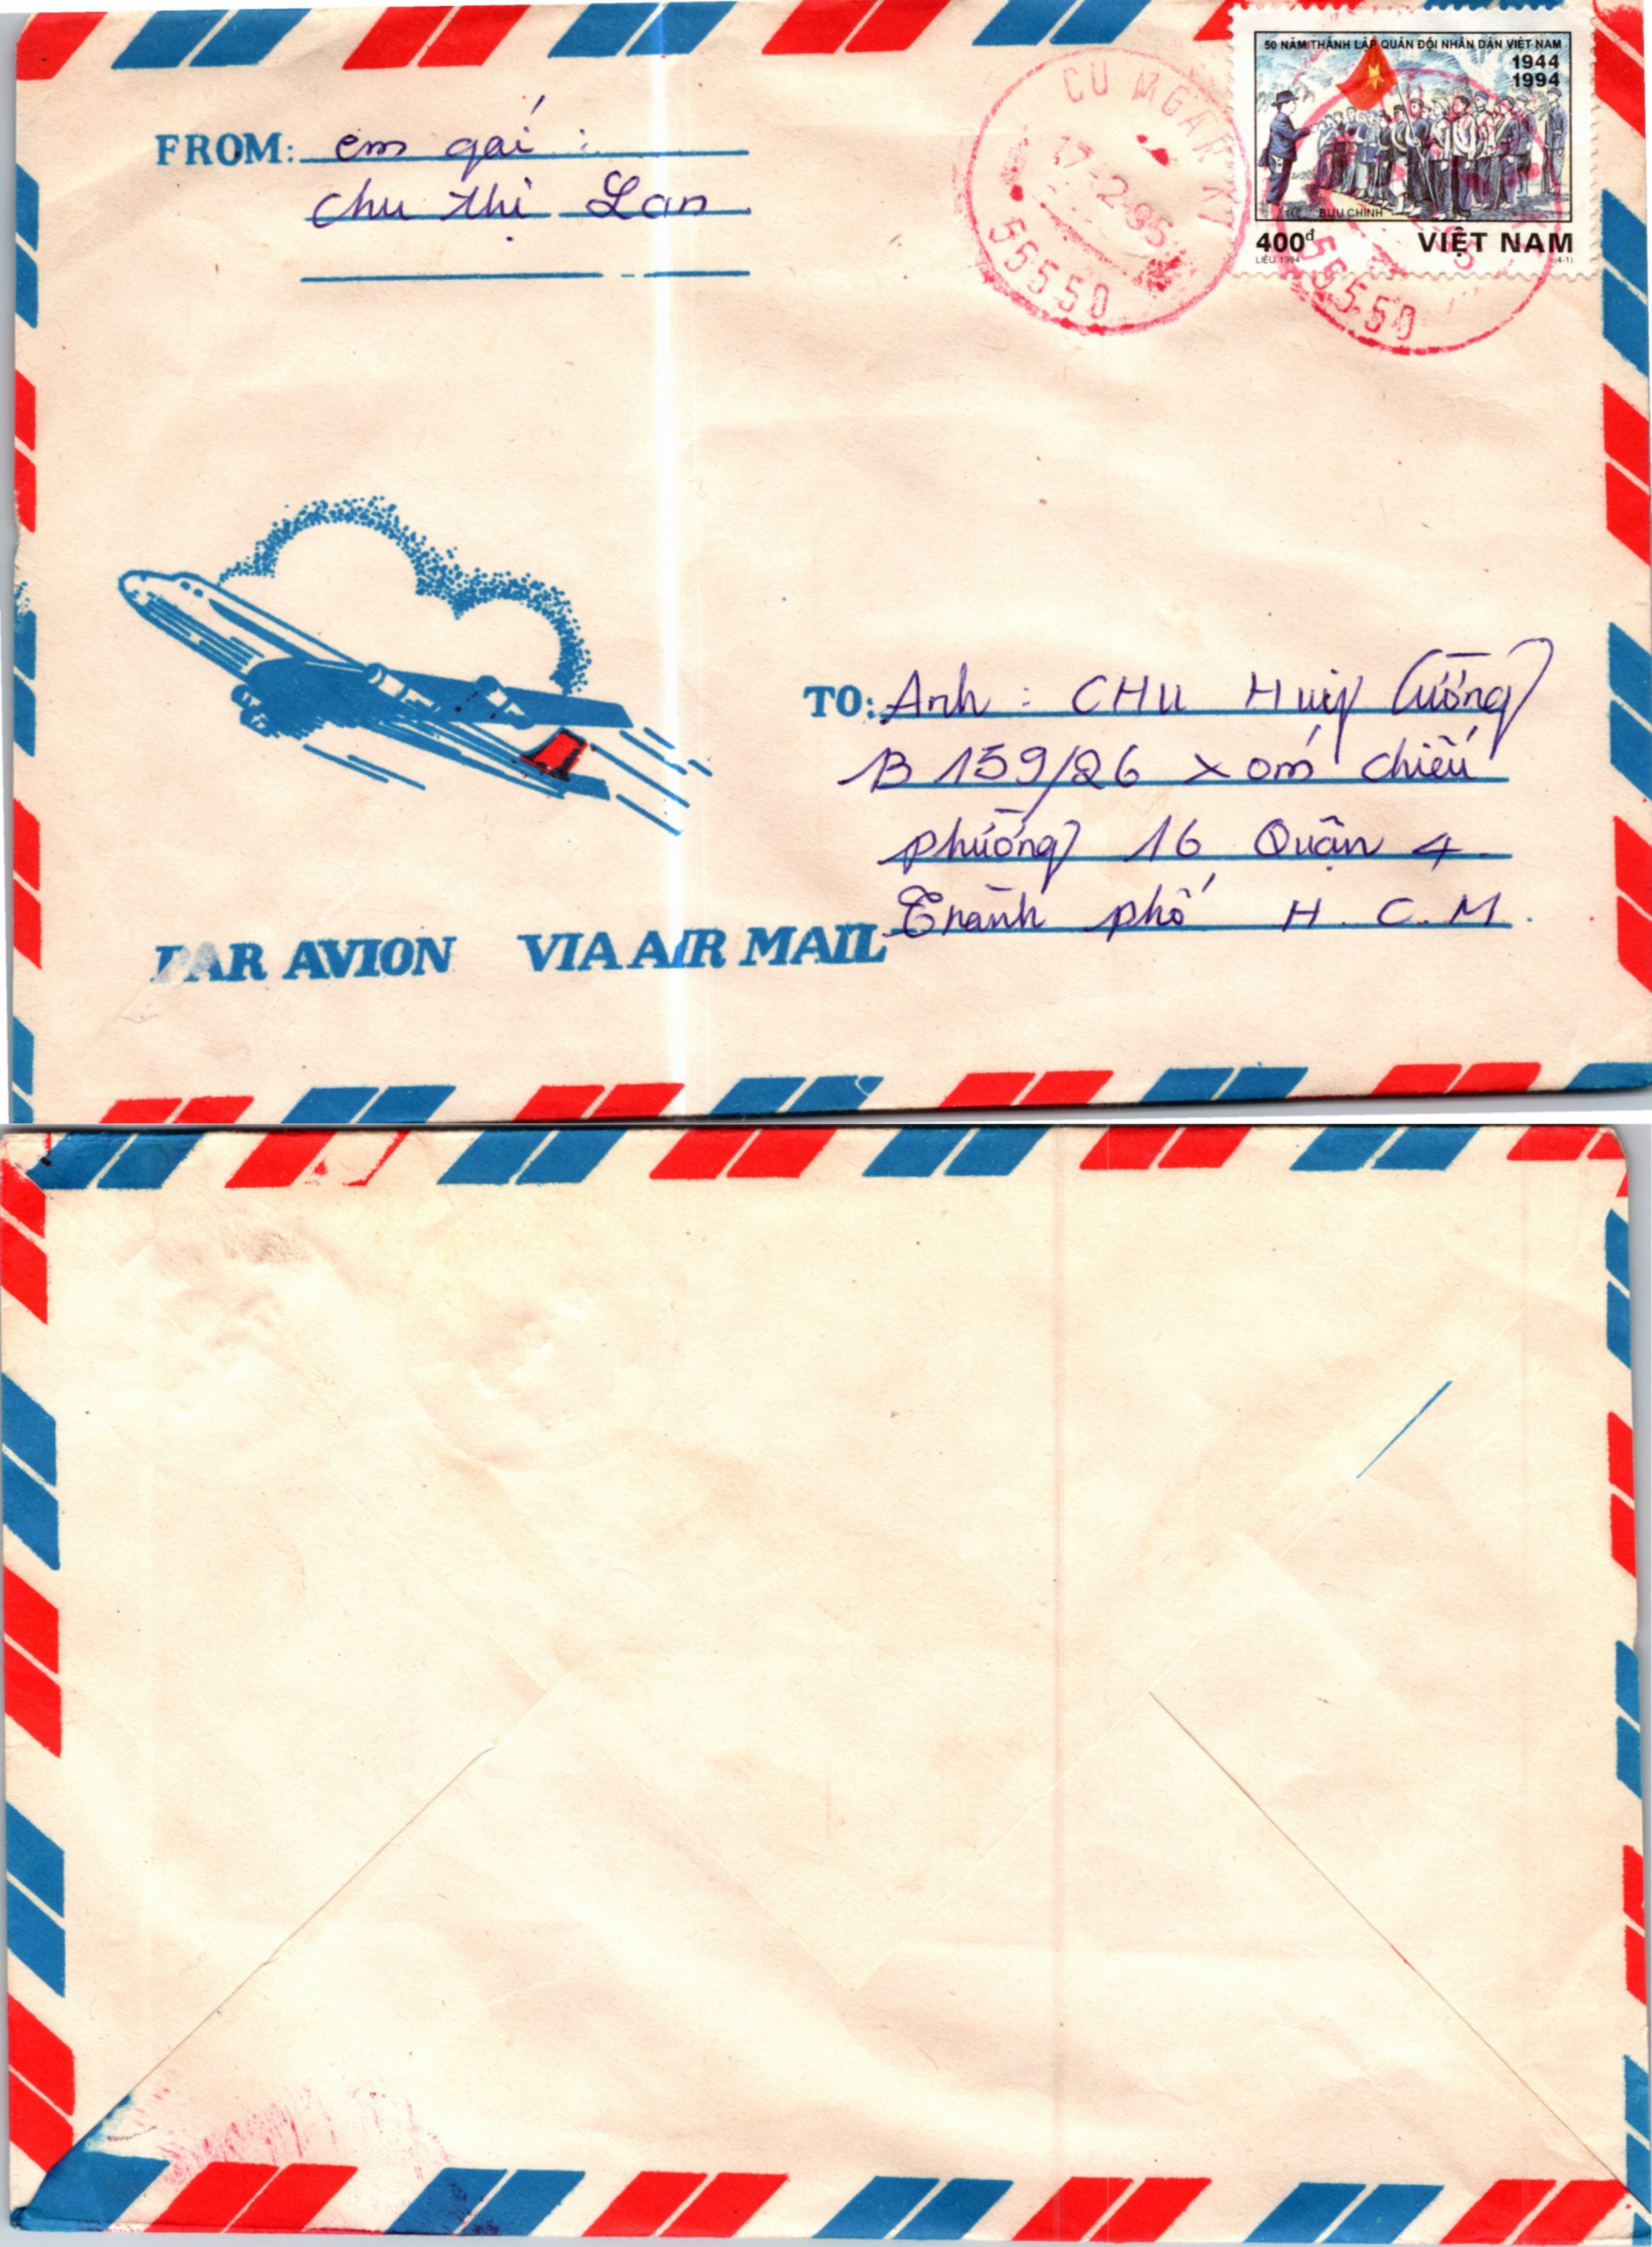 50 NĂM THÀNH LẬP QUÂN ĐỘI NHÂN DÂN VIỆT NAM
1944
1994
BƯU CHÍNH
400đ VIỆT NAM
LIỄU 1994 (4-1)
CU MGAR
17-2-95
55550
55550
FROM: em gái :
chu thị Lan
TO: Anh : CHU Huy Cường
B 159/26 xóm chiếu
phường 16 Quận 4
Thành phố H.C.M.
PAR AVION VIA AIR MAIL